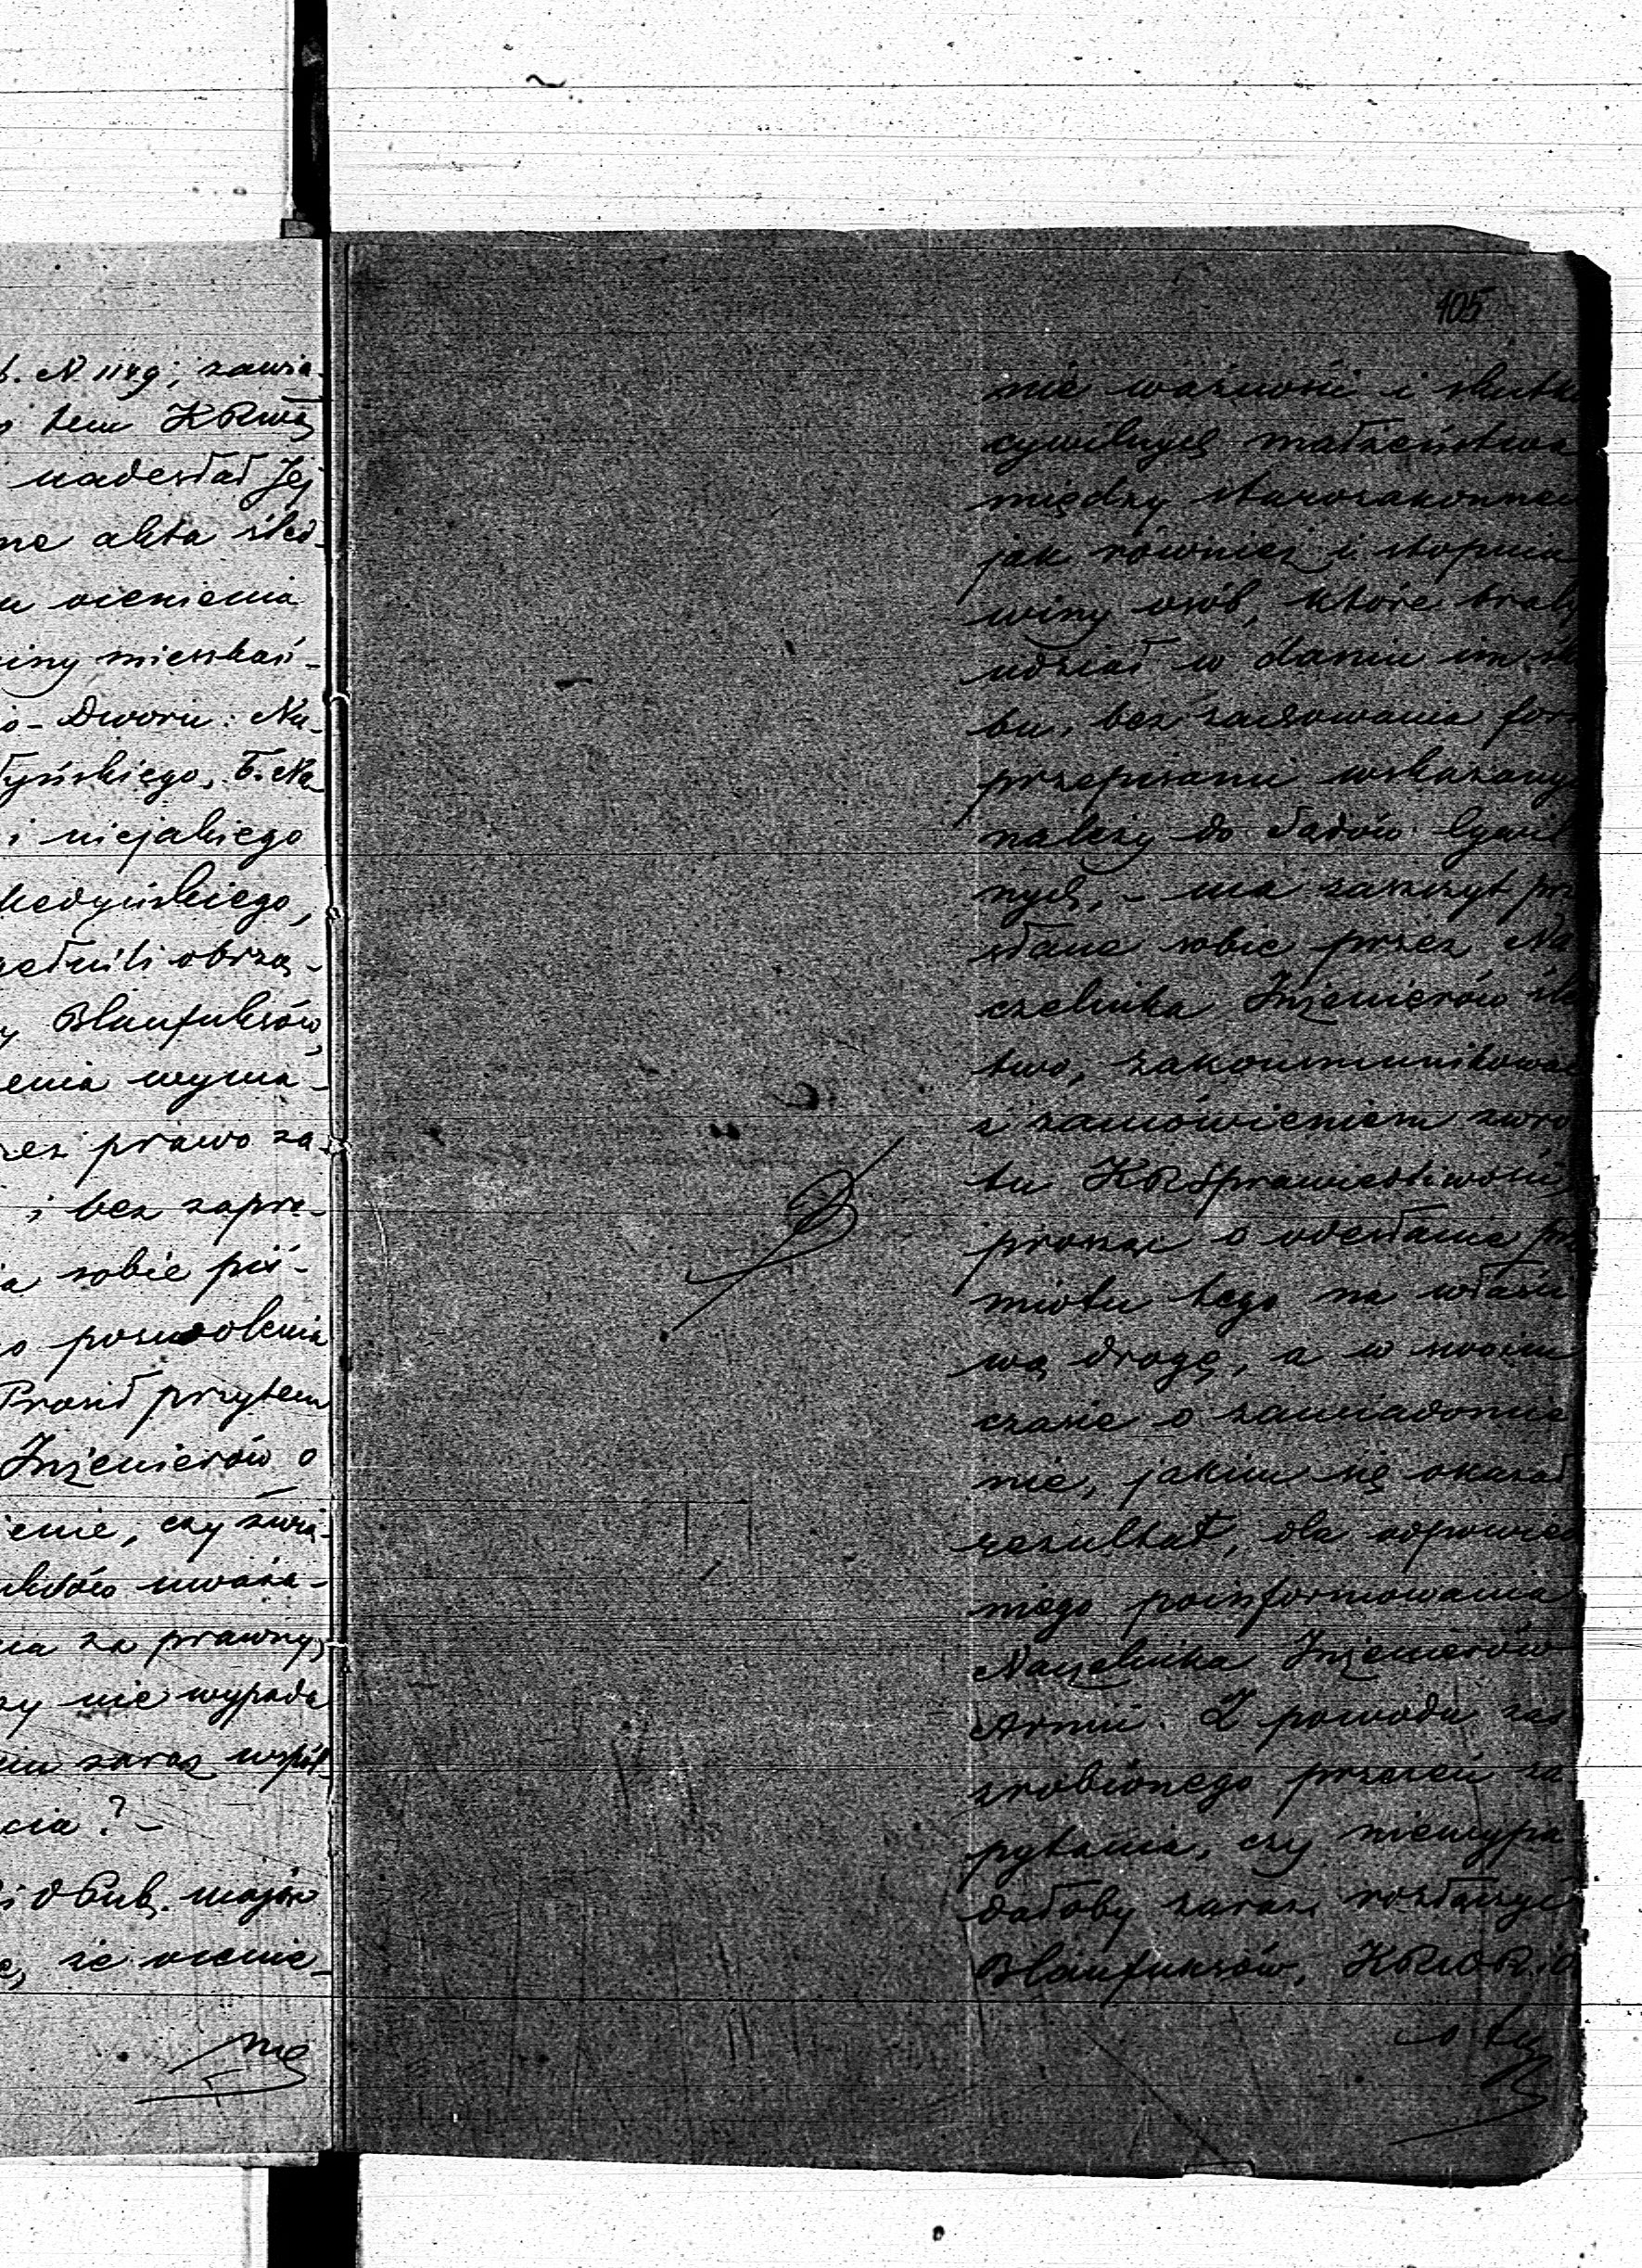 b. N. 1149; zawia-
o tem KRwą
nadesłał Jej
ne akta śled-
u ocenienia
winy mieszkań-
o-Dworu: Na-
łyńskiego,
i niejakiego
Medyńskiego,
pełnili obrzą-
y Blaufuksów,
enia wyma-
zez prawo za-
i bez zapro-
a sobie piś-
o pozwolenia
Prosił przytem
Inżenierów o
enie, czy zwią-
uksów uważa-
na za prawny,
zy nie wypada
im zaraz współ
cia? –
i D Pub. mając
e, że ocenie-
nie
105
nie ważności i skutk
cywilnych małżeństwa
między starozakonnem
jak również i stopnia
winy osób, które brały
udział w daniu im ślu
bu, bez zachowania for
przepisami wskazany
należy do Sądów Cywil
nych, – ma zaszczyt prze
słane sobie przez Na
czelnika Inżenierów śle
two, zakommunikować
z zamówieniem zwro
tu KRSprawiedliwości,
prosząc o odesłanie prz
miotu tego na właści
wą drogę, a w swoim
czasie o zawiadomie
nie, jakim się okazał
rezultat, dla odpowied
niego poinformowania
Naczelnika Inżenierów
Armii. Z powodu zaś
zrobionego przezeń za
pytania, czy niewypa
dałoby zaraz rozłączyć
Blaufuksów, KRWRiO